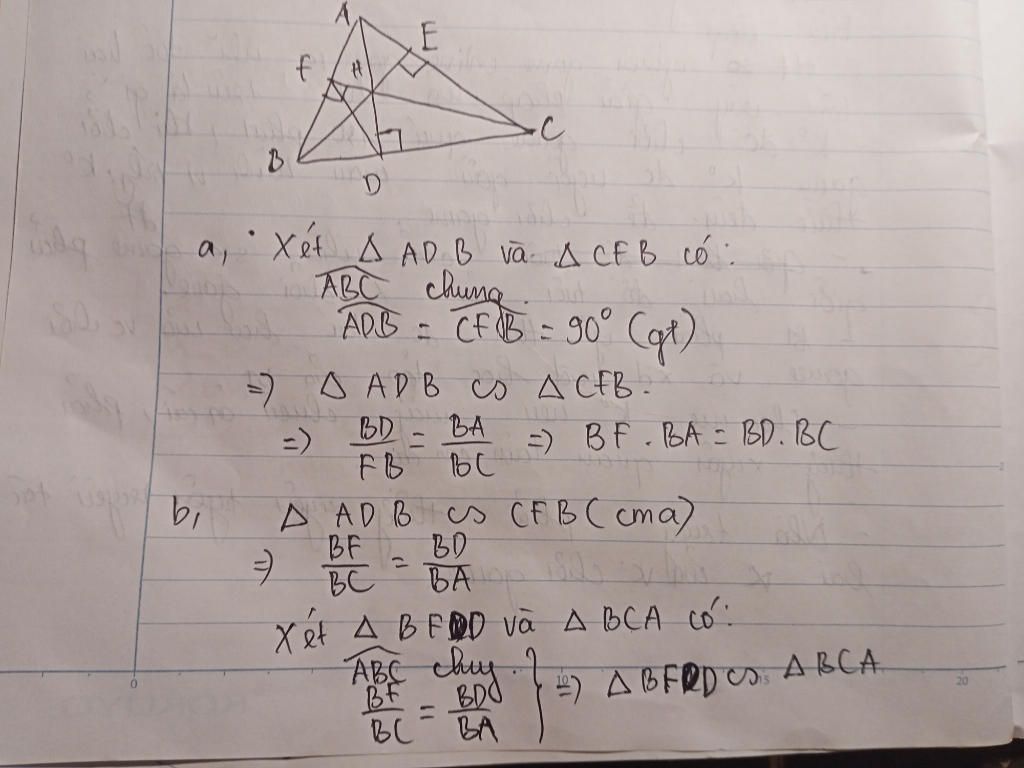 A
E
F
H
C
B
D
a, Xét Δ ADB và Δ CFB có:
ABC chung.
ADB = CFB = 90° (gt)
=> Δ ADB ∽ Δ CFB.
=> BD/FB = BA/BC => BF . BA = BD. BC
b, Δ ADB ∽ CFB (cma)
=> BF/BC = BD/BA
Xét Δ BFD và Δ BCA có:
ABC chug. } => Δ BFD ∽ Δ BCA
BF/BC = BD/BA
0 10 15 20